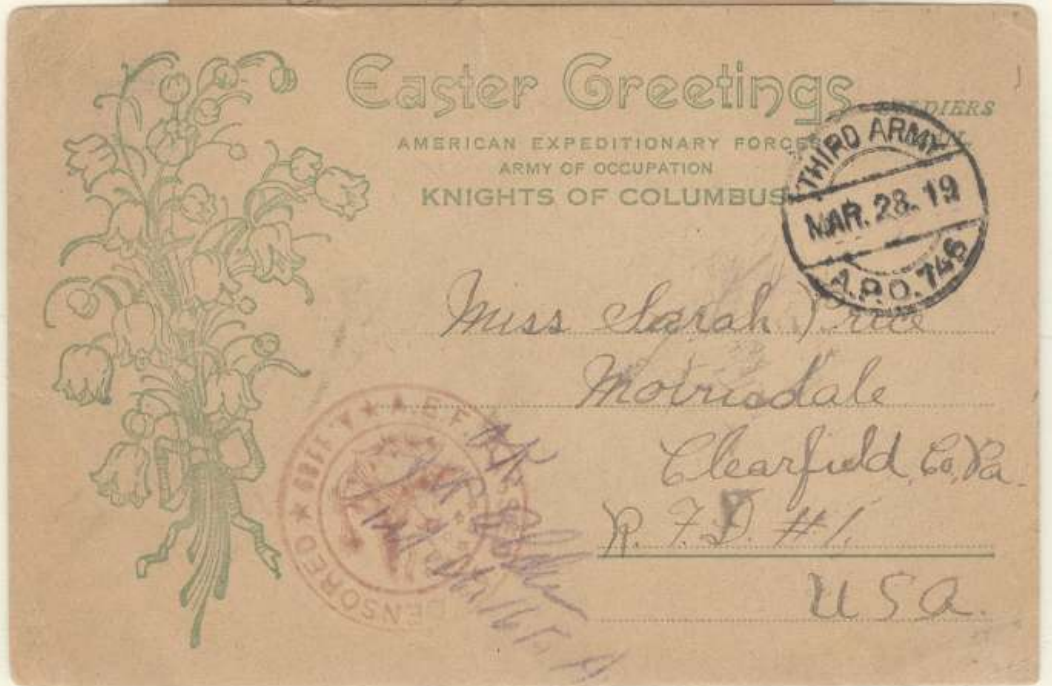 Easter Greetings
AMERICAN EXPEDITIONARY FORCES
ARMY OF OCCUPATION
KNIGHTS OF COLUMBUS
THIRD ARMY
MAR. 28. 19
A.P.O. 746
Miss Sarah Price
Morrisdale
Clearfield, Co, Pa.
R. F. D. #1.
USA.
A.E.F.
CENSORED